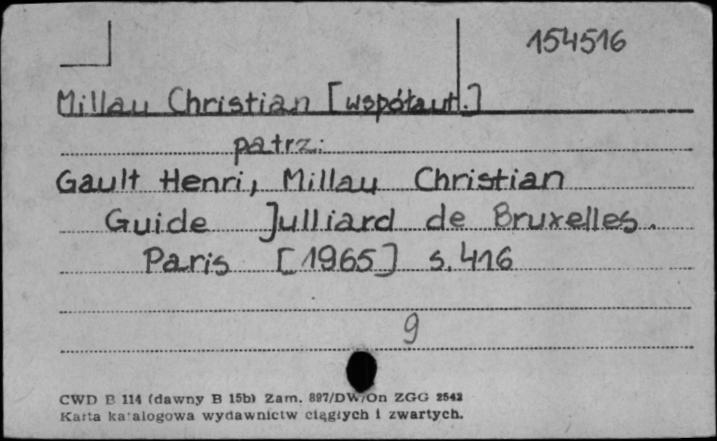 154516
Millau Christian [współaut.]
patrz:
Gault Henri, Millau Christian
Guide Julliard de Bruxelles.
Paris [1965] s. 416
9
CWD B 114 (dawny B 15b) Zam. 897/DW/On ZGG 2542
Karta katalogowa wydawnictw ciągłych i zwartych.